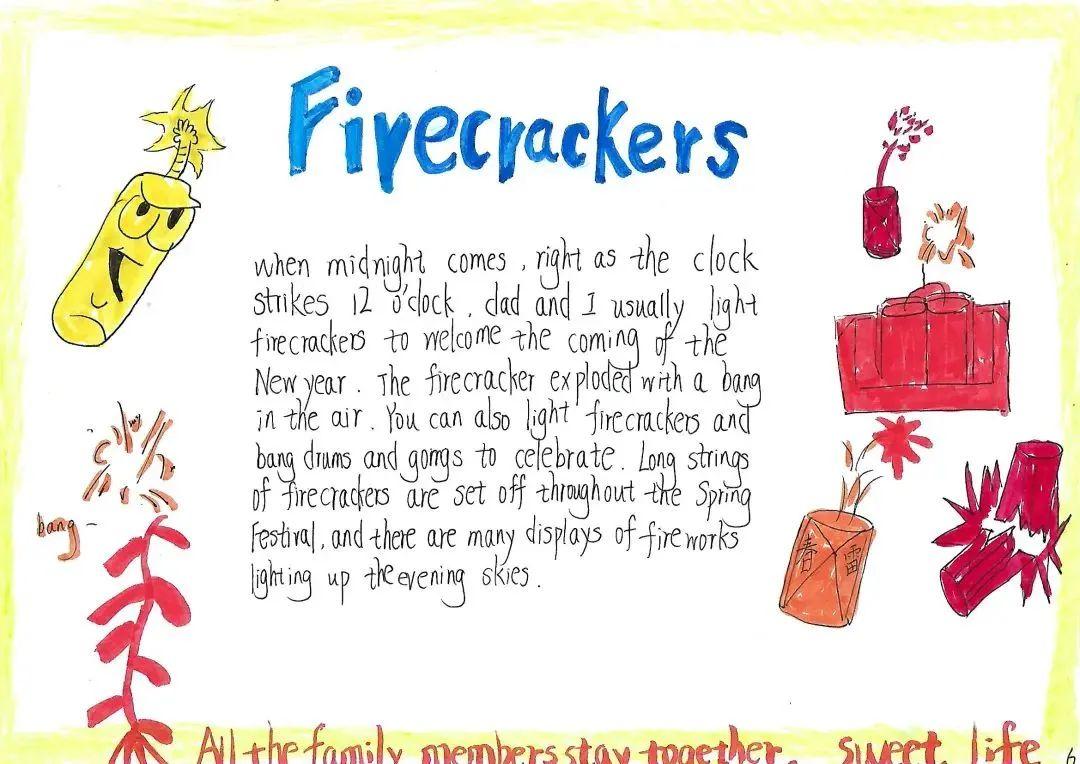 Firecrackers
when midnight comes, right as the clock
strikes 12 o'clock, dad and I usually light
firecrackers to welcome the coming of the
New year. The firecracker exploded with a bang
in the air. You can also light firecrackers and
bang drums and gongs to celebrate. Long strings
of firecrackers are set off throughout the Spring
Festival, and there are many displays of fireworks
lighting up the evening skies.
bang
春雷
All the family members stay together. sweet life
6